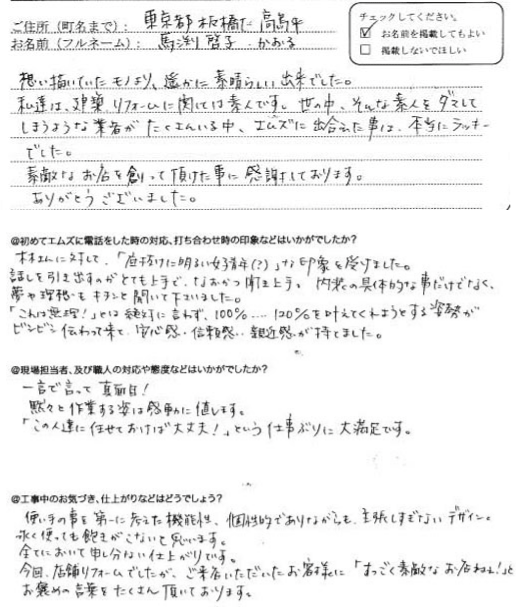 ご住所（町名まで）： 東京都板橋区高島平
お名前（フルネーム）： 馬渕啓子・かおる
チェックしてください。
☑ お名前を掲載してもよい
□ 掲載しないでほしい
想い描いていたモノより、遥かに素晴らしい出来でした。
私達は、建築、リフォームに関しては素人です。世の中、そんな素人をダマして
しまうような業者がたくさんいる中、エムズに出会えた事は、本当にラッキー
でした。
素敵なお店を創って頂けた事に感謝しております。
ありがとうございました。
@初めてエムズに電話をした時の対応、打ち合わせ時の印象などはいかがでしたか？
木村さんに対して、「底抜けに明るい好青年(?)」な印象を受けました。
話しを引き出すのがとても上手で、なおかつ聞き上手。内装の具体的な事だけでなく、
夢や理想もキチンと聞いて下さいました。
「これは無理！」とは絶対に言わず、100%....120%を叶えてくれようとする姿勢が
ビンビン伝わって来て、安心感・信頼感・親近感が持てました。
@現場担当者、及び職人の対応や態度などはいかがでしたか？
一言で言って真面目！
黙々と作業する姿は感動に値します。
「この人達に任せておけば大丈夫！」という仕事ぶりに大満足です。
@工事中のお気づき、仕上がりなどはどうでしょう？
使い手の事を第一に考えた機能性、個性的でありながらも、主張しすぎないデザイン。
永く使っても飽きがこないと思います。
全てにおいて申し分ない仕上がりです。
今回、店舗リフォームでしたが、ご来店いただいたお客様に「すっごく素敵なお店ねぇ！」と
お褒めの言葉をたくさん頂いております。